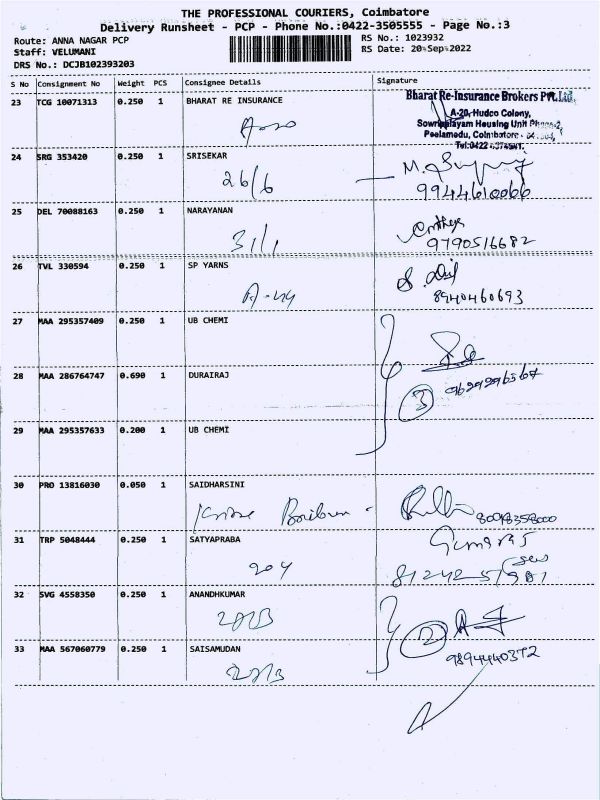 THE PROFESSIONAL COURIERS, Coimbatore
Delivery Runsheet - PCP - Phone No.:0422-3505555 - Page No.:3
Route: ANNA NAGAR PCP RS No.: 1023932
Staff: VELUMANI RS Date: 20-Sep-2022
DRS No.: DCJB102393203
S No Consignment No Weight PCS Consignee Details Signature
23 TCG 10071313 0.250 1 BHARAT RE INSURANCE
Bharat Re-Insurance Brokers Pvt.Ltd.
A-20, Hudco Colony,
Sowripalayam Housing Unit
Peelamedu, Coimbatore -
Tel:0422
24 SRG 353420 0.250 1 SRISEKAR
26/6
9944610066
25 DEL 70088163 0.250 1 NARAYANAN
31/1
9790516682
26 TVL 330594 0.250 1 SP YARNS
A-44
8940460693
27 MAA 295357409 0.250 1 UB CHEMI
28 MAA 286764747 0.690 1 DURAIRAJ
3
29 MAA 295357633 0.200 1 UB CHEMI
30 PRO 13816030 0.050 1 SAIDHARSINI
31 TRP 5048444 0.250 1 SATYAPRABA
204
32 SVG 4558350 0.250 1 ANANDHKUMAR
2
33 MAA 567060779 0.250 1 SAISAMUDAN
9894440372